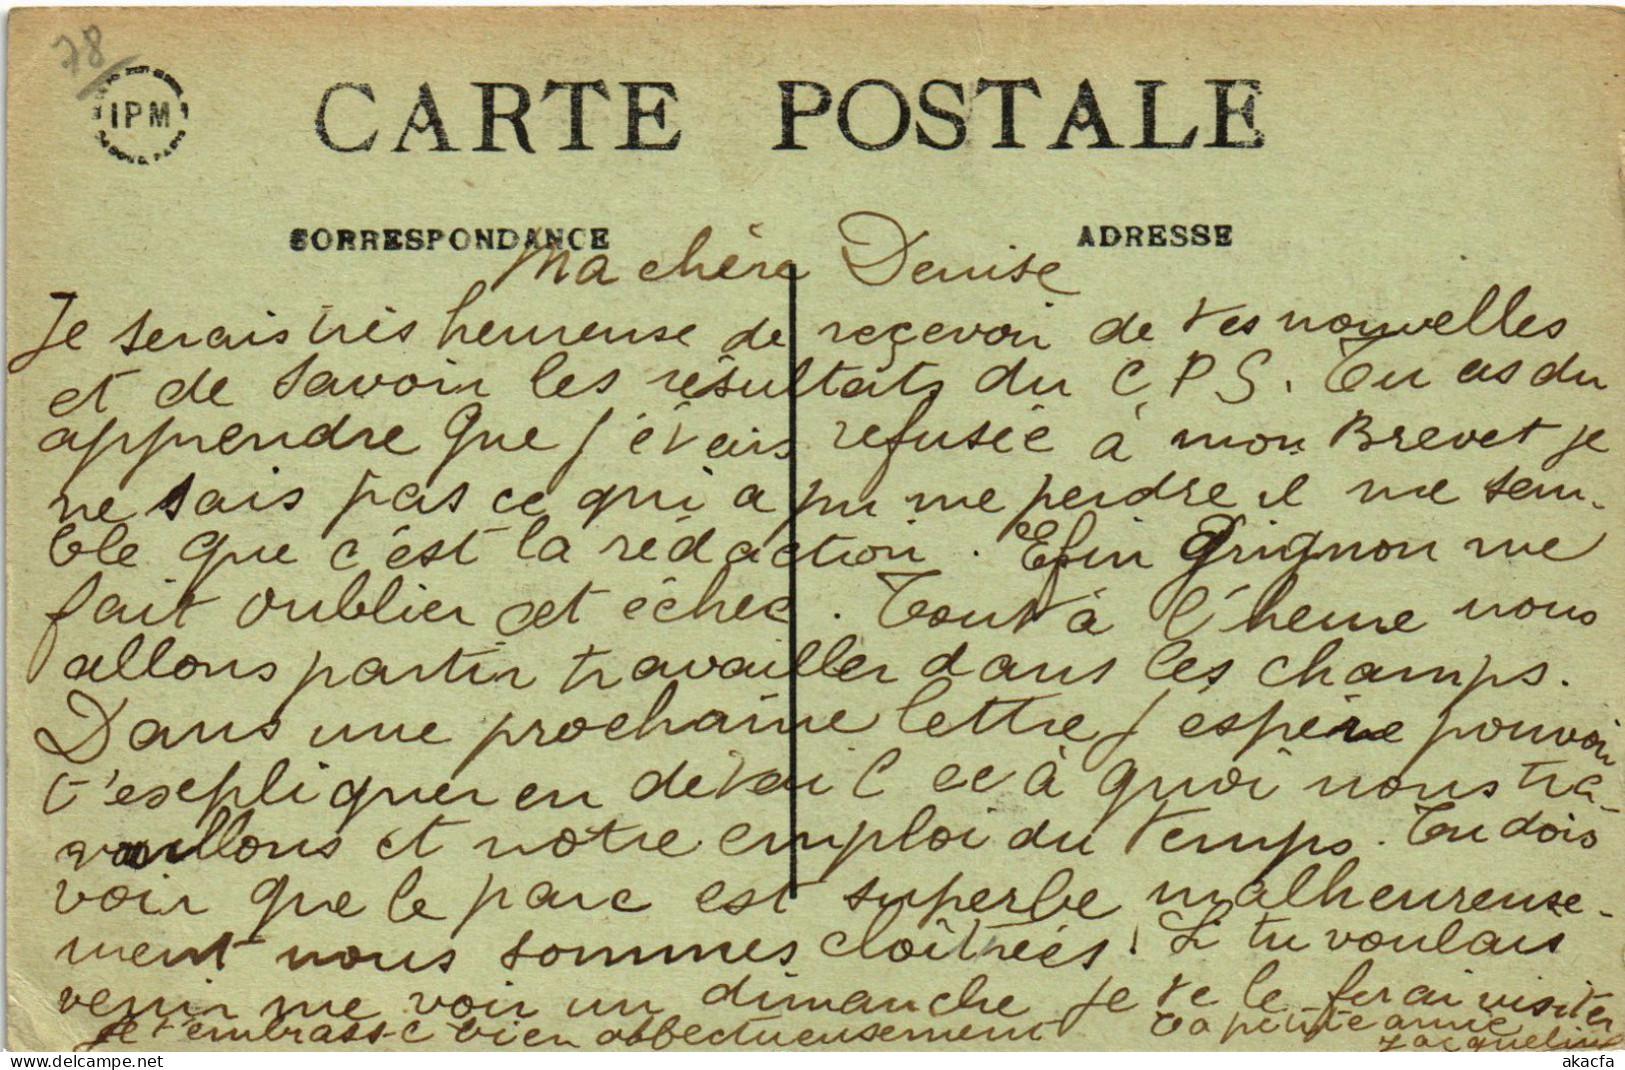 78
IPM
CARTE POSTALE
CORRESPONDANCE
ADRESSE
Ma chère Denise
Je serais très heureuse de reçevoir de tes nouvelles
et de savoir les résultats du C.P.S. Tu as du
apprendre que j'étais refusée à mon Brevet je
ne sais pas ce qui a pu me perdre il me sem-
ble que c'est la rédaction. Efin Grignon me
fait oublier cet échec. Tout à l'heure nous
allons partir travailler dans les champs.
Dans une prochaine lettre j'espère pouvoir
t'expliquer en détail ce à quoi nous tra-
vaillons et notre emploi du temps. Tu dois
voir que le parc est superbe malheureuse-
ment nous sommes cloîtrées! Si tu voulais
venir me voir un dimanche je te le ferai visiter
Je t'embrasse bien affectueusement Ta petite amie
Jacqueline
akacfa